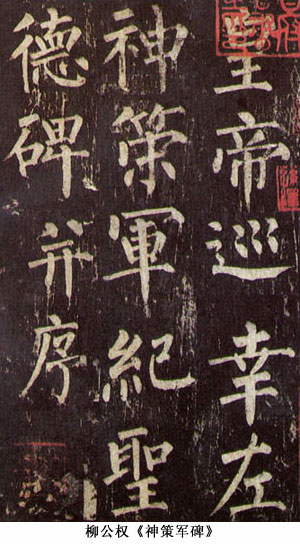 皇帝巡幸左
神策軍紀聖
德碑并序
柳公权《神策军碑》